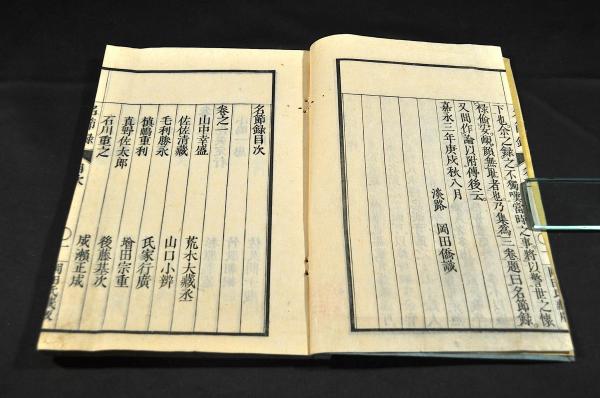 下也余之録之不獨
當時之事將以警世之懷
祿偷安
顏無耻者也乃集爲三卷題曰名節錄
又間作論以附傳後云
嘉永三年庚戌秋八月
淡路 岡田僑識
名節錄目次
卷之一
山中幸盛 荒木大藏丞
佐佐清藏 山口小辨
毛利勝永 氏家行廣
槙嶋重利 増田宗重
眞野佐太郎 後藤基次
石川重之 成瀨正成
名節錄 目次 一